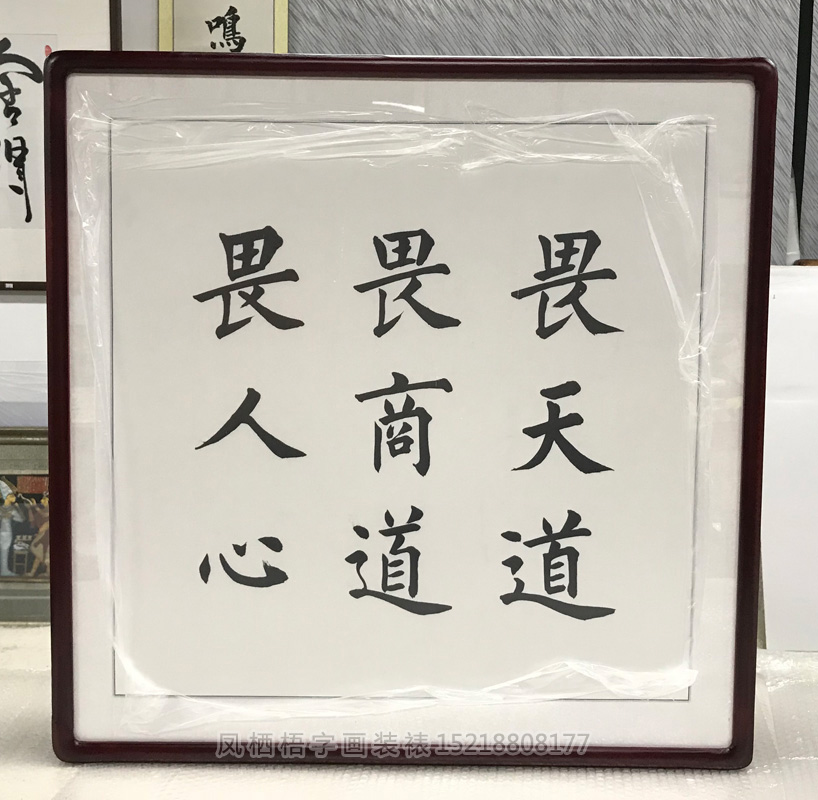 畏天道
畏商道
畏人心
鳴
凤栖梧字画装裱15218808177